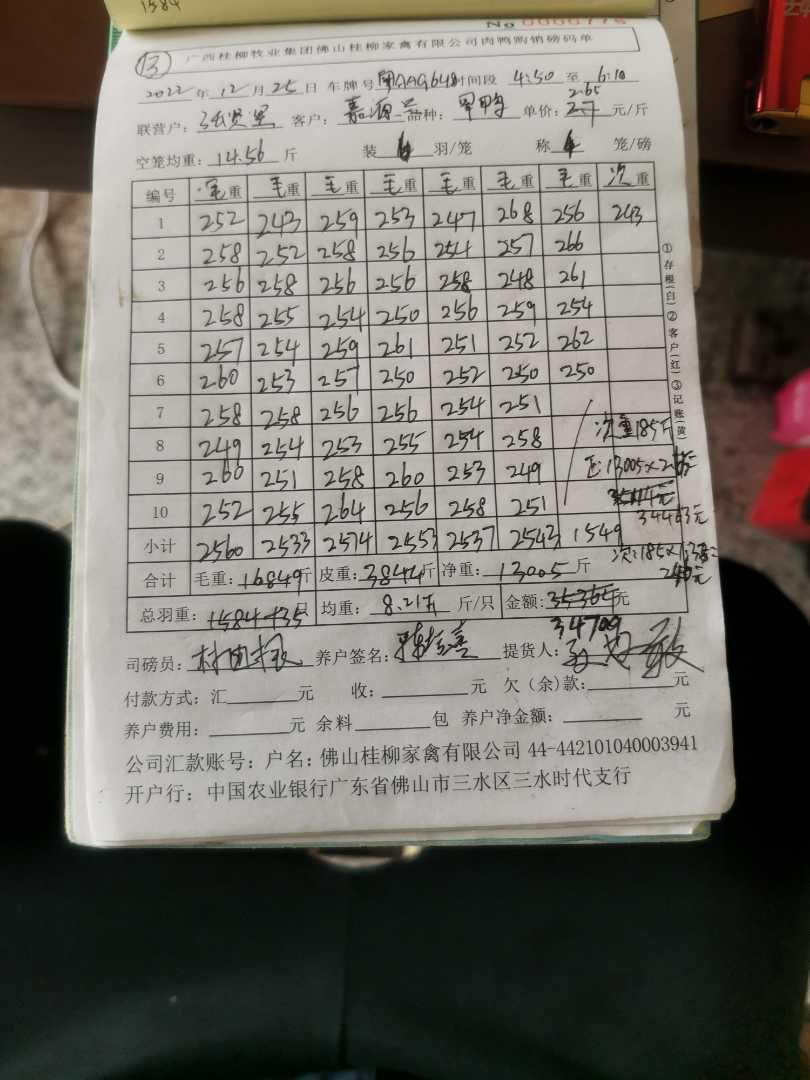 1584
No 0000776
13
广西桂柳牧业集团佛山桂柳家禽有限公司肉鸭购销磅码单
2022年12月25日 车牌号 时间段 4:50 至 6:10
2.65
联营户: 客户: 嘉 品种: 单价: 2.7 元/斤
空笼均重: 14.56 斤 装 羽/笼 称 4 笼/磅
编号 毛重 毛重 毛重 毛重 毛重 毛重 毛重 次重
1 252 243 259 253 247 268 256 243
2 258 252 258 256 254 257 266
3 256 258 256 256 258 248 261
4 258 255 254 250 256 259 254
5 257 254 259 261 251 252 262
6 260 253 257 250 252 250 250
7 258 258 256 256 254 251
8 249 254 253 255 254 258
次重185斤
9 260 251 258 260 253 249
10 252 255 264 256 258 251
34463元
小计 2560 2533 2574 2553 2537 2543 1549
合计 毛重: 16849斤 皮重: 3844斤 净重: 13005斤
总羽重: 1584 +35只 均重: 8.21斤 斤/只 金额: 35364元
34709
司磅员: 养户签名: 提货人:
付款方式: 汇 元 收: 元 欠(余)款: 元
养户费用: 元 余料 包 养户净金额: 元
公司汇款账号: 户名: 佛山桂柳家禽有限公司 44-442101040003941
开户行: 中国农业银行广东省佛山市三水区三水时代支行
①存根(白)②客户(红)③记账(黄)